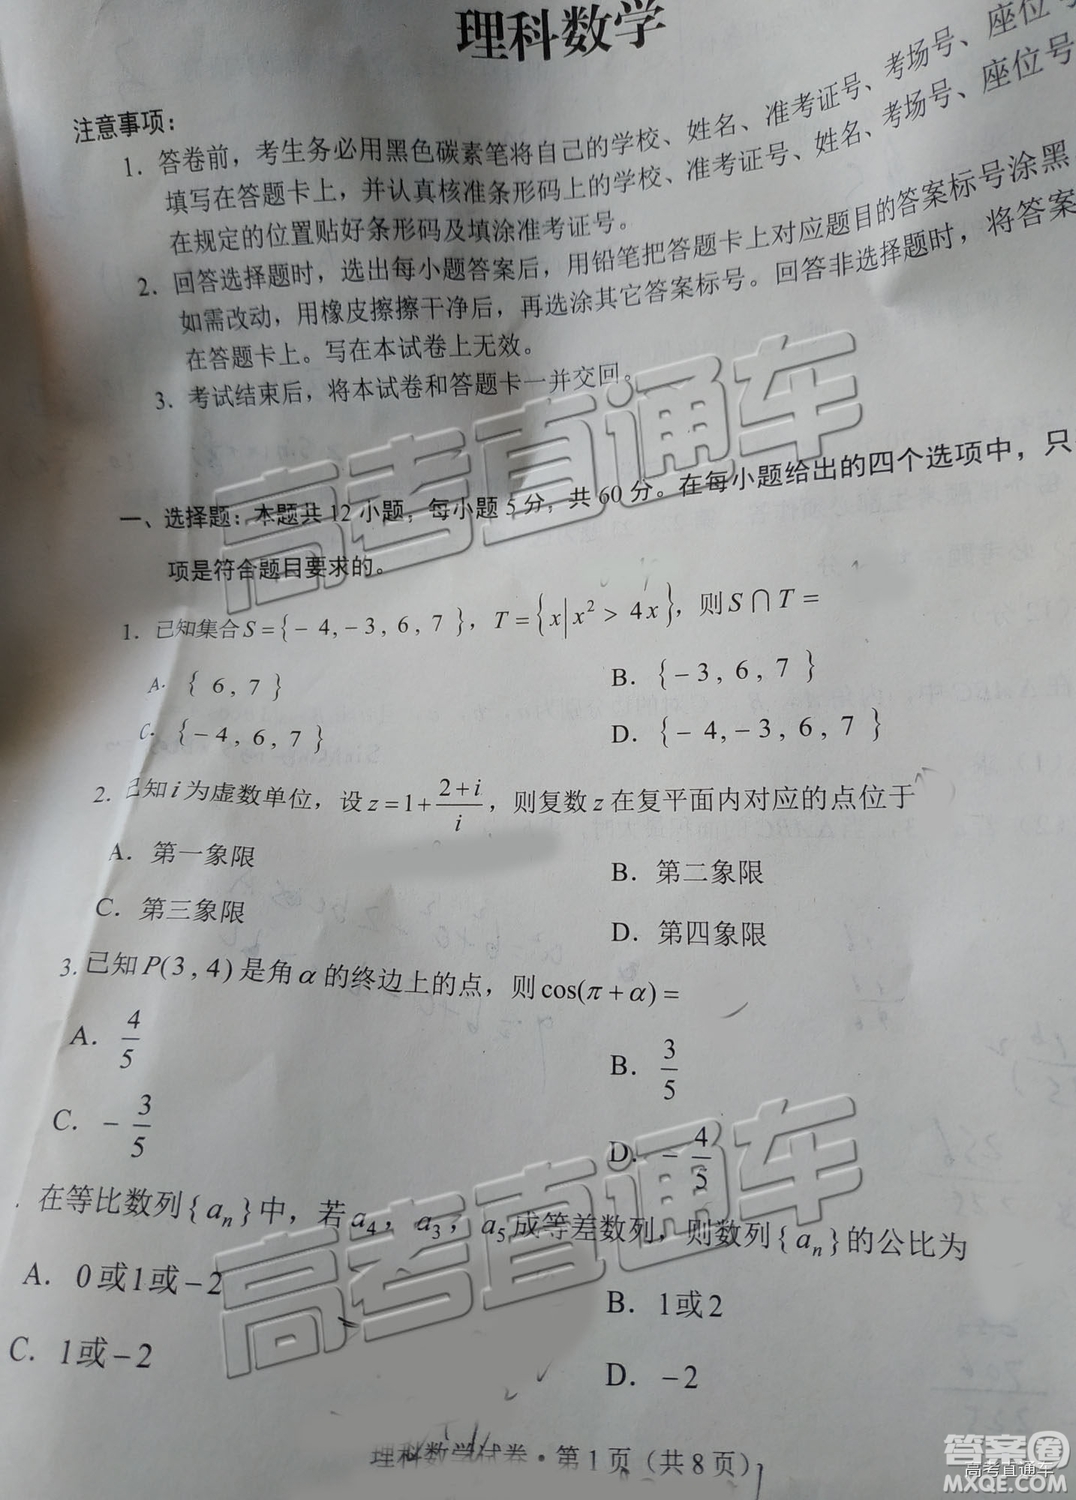 理科数学
注意事项：
1. 答卷前，考生务必用黑色碳素笔将自己的学校、姓名、准考证号、考场号、座位号
填写在答题卡上，并认真核准条形码上的学校、准考证号、姓名、考场号、座位号
在规定的位置贴好条形码及填涂准考证号。
2. 回答选择题时，选出每小题答案后，用铅笔把答题卡上对应题目的答案标号涂黑
如需改动，用橡皮擦擦干净后，再选涂其它答案标号。回答非选择题时，将答案
在答题卡上。写在本试卷上无效。
3. 考试结束后，将本试卷和答题卡一并交回。
高考直通车
一、选择题：本题共 12 小题，每小题 5 分，共 60 分。在每小题给出的四个选项中，只
项是符合题目要求的。
1. 已知集合 S={-4,-3,6,7}，T={x|x²>4x}，则 S∩T=
A. {6,7}
B. {-3,6,7}
C. {-4,6,7}
D. {-4,-3,6,7}
2. 已知 i 为虚数单位，设 z=1+(2+i)/i，则复数 z 在复平面内对应的点位于
A. 第一象限
B. 第二象限
C. 第三象限
D. 第四象限
3. 已知 P(3,4) 是角 α 的终边上的点，则 cos(π+α)=
A. 4/5
B. 3/5
C. -3/5
D. -4/5
高考直通车
. 在等比数列{aₙ}中，若 a₄，a₃，a₅成等差数列，则数列{aₙ}的公比为
A. 0或1或-2
B. 1或2
C. 1或-2
D. -2
理科数学试卷·第1页（共8页）
答案圈
高考直通车
MXQE.COM